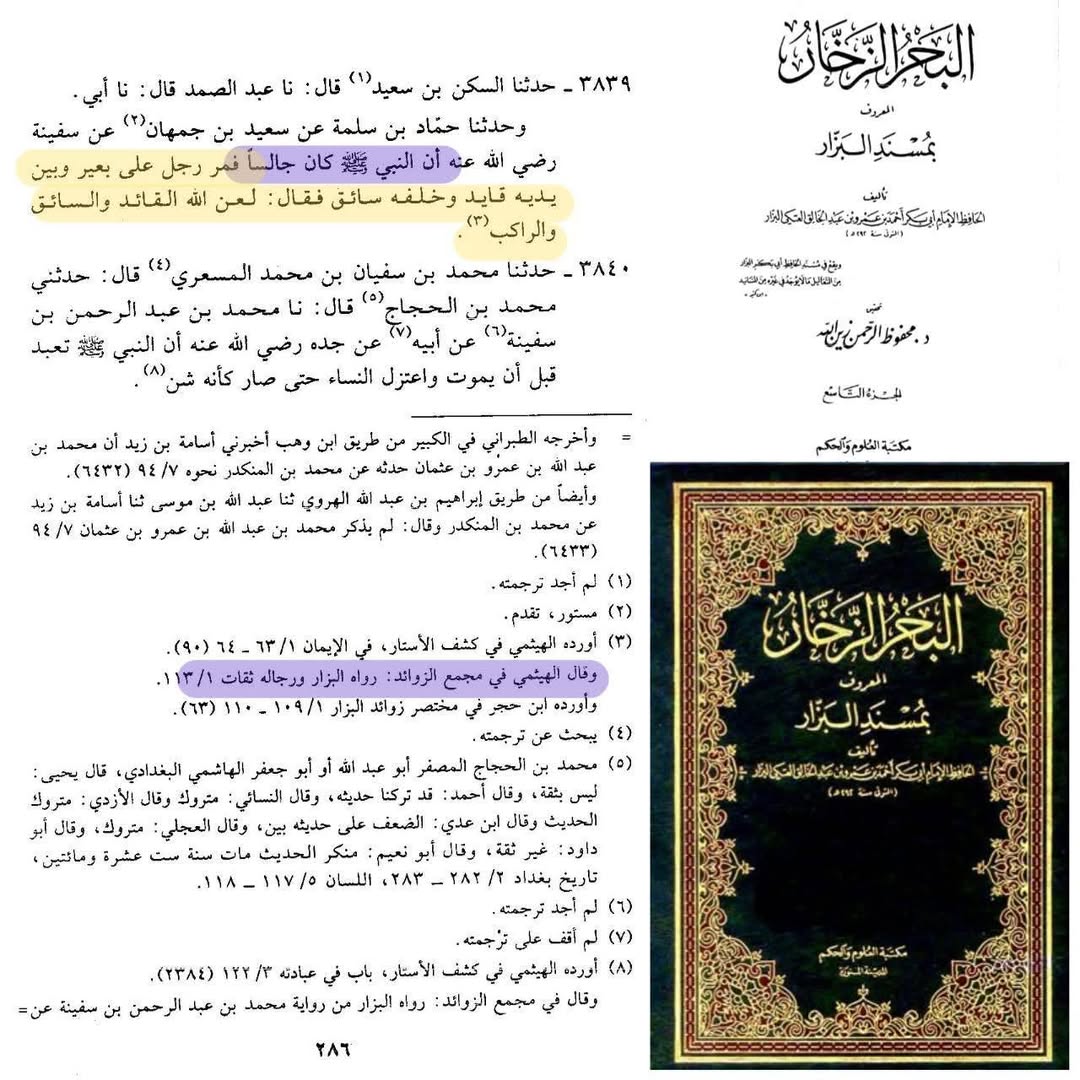 ٣٨٣٩ ـ حدثنا السكن بن سعيد(١) قال: نا عبد الصمد قال: نا أبي.
وحدثنا حمّاد بن سلمة عن سعيد بن جمهان(٢) عن سفينة
رضي الله عنه أن النبي ﷺ كان جالساً فمر رجل على بعير وبين
يديه قايد وخلفه سائق فقال: لعن الله القائد والسائق
والراكب(٣).
٣٨٤٠ ـ حدثنا محمد بن سفيان بن محمد المسعري(٤) قال: حدثني
محمد بن الحجاج(٥) قال: نا محمد بن عبد الرحمن بن
سفينة(٦) عن أبيه(٧) عن جده رضي الله عنه أن النبي ﷺ تعبد
قبل أن يموت واعتزل النساء حتى صار كأنه شن(٨).
= وأخرجه الطبراني في الكبير من طريق ابن وهب أخبرني أسامة بن زيد أن محمد بن
عبد الله بن عمرو بن عثمان حدثه عن محمد بن المنكدر نحوه ٩٤/٧ (٦٤٣٢).
وأيضاً من طريق إبراهيم بن عبد الله الهروي ثنا عبد الله بن موسى ثنا أسامة بن زيد
عن محمد بن المنكدر وقال: لم يذكر محمد بن عبد الله بن عمرو بن عثمان ٩٤/٧
(٦٤٣٣).
(١) لم أجد ترجمته.
(٢) مستور، تقدم.
(٣) أورده الهيثمي في كشف الأستار، في الإيمان ٦٣/١ ـ ٦٤ (٩٠).
وقال الهيثمي في مجمع الزوائد: رواه البزار ورجاله ثقات ١١٣/١.
وأورده ابن حجر في مختصر زوائد البزار ١٠٩/١ ـ ١١٠ (٦٣).
(٤) يبحث عن ترجمته.
(٥) محمد بن الحجاج المصفر أبو عبد الله أو أبو جعفر الهاشمي البغدادي، قال يحيى:
ليس بثقة، وقال أحمد: قد تركنا حديثه، وقال النسائي: متروك وقال الأزدي: متروك
الحديث وقال ابن عدي: الضعف على حديثه بين، وقال العجلي: متروك، وقال أبو
داود: غير ثقة، وقال أبو نعيم: منكر الحديث مات سنة ست عشرة ومائتين،
تاريخ بغداد ٢٨٢/٢ ـ ٢٨٣، اللسان ١١٧/٥ ـ ١١٨.
(٦) لم أجد ترجمته.
(٧) لم أقف على ترْجمته.
(٨) أورده الهيثمي في كشف الأستار، باب في عبادته ١٢٢/٣ (٢٣٨٤).
وقال في مجمع الزوائد: رواه البزار من رواية محمد بن عبد الرحمن بن سفينة عن=
٢٨٦
البَحْرُ الزَّخَّارُ
المعروف
بمُسْنَدِ البَزَّار
تأليف
الحافظ الإمام أبي بكر أحمد بن عمرو بن عبد الخالق العتكي البزار
(المتوفى سنة ٢٩٢ هـ)
ويقع في مسند الحافظ أبي بكر البزار
من التعاليل ما لا يوجد في غيره من المسانيد
- ابن كثير -
تحقيق
د. محفوظ الرحمن زين الله
الجزء التاسع
مكتبة العلوم والحكم
البَحْرُ الزَّخَّارُ
المعروف
بمُسْنَدِ البَزَّار
تأليف
الحافظ الإمام أبي بكر أحمد بن عمرو بن عبد الخالق العتكي البزار
(المتوفى سنة ٢٩٢ هـ)
مكتبة العلوم والحكم
المدينة المنورة